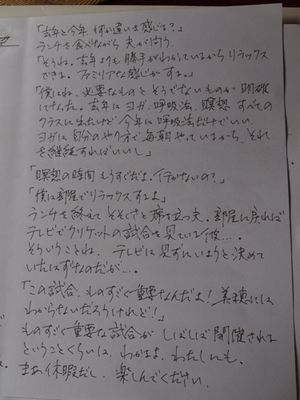 「去年と今年 何か違いを感じる?」
ランチを食べながら 夫が問う。
「そうね。去年よりも 勝手がわかっているから リラックス
できる。ファミリアな感じがするよ。」
「僕はね、必要なものと そうでないものが 明確
になった。去年は ヨガ、呼吸法、瞑想 すべての
クラスに出たけど 今年は 呼吸法だけでいい。
ヨガは自分のやり方で 毎朝やっているから、それ
を継続すればいいし」
「瞑想の時間 もうすぐだよ。行かないの?」
「僕は部屋でリラックスするよ」
ランチを終えて そそくさと席を立つ夫。部屋に戻れば
テレビでクリケットの試合を見ている彼…。
そういうことね。テレビは見ずにいようと決めて
いたはずなのだが…。
「この試合、ものすごく重要なんだよ! 美穂には
わからないだろうけれど!」
ものすごく重要な試合が しばしば開催される
ということくらいは、わかるよ、わたしにも。
まあ休暇だし、楽しんでください。